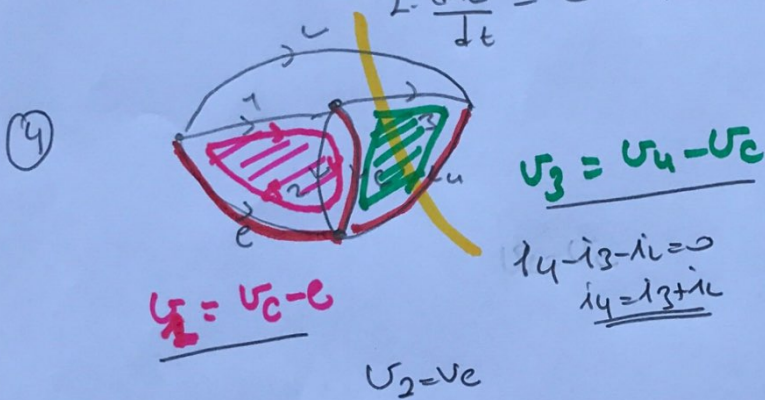 L.
dt
4
L
1
3
2
4
e
v3 = v4 - vc
i4-i3-iL=0
i4=i3+iL
v1 = vc-e
v2=vc